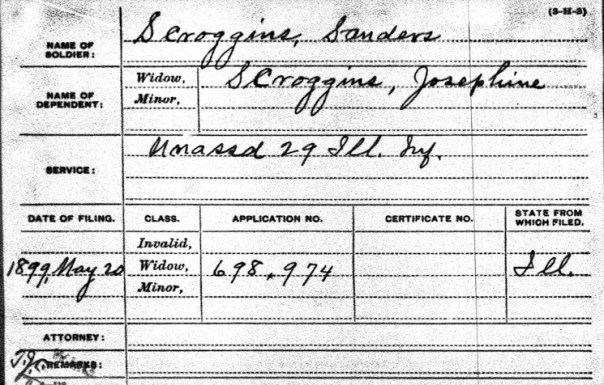 (3-H-3)
NAME OF SOLDIER: Scroggins, Sanders
NAME OF DEPENDENT: Widow, Scroggins, Josephine
Minor,
SERVICE: Unassd 29 Ill. Inf.
DATE OF FILING. CLASS. APPLICATION NO. CERTIFICATE NO. STATE FROM WHICH FILED.
Invalid,
1899, May 20 Widow, 698,974 Ill.
Minor,
ATTORNEY:
REMARKS: